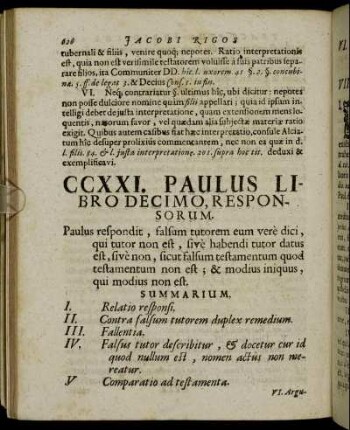 626 JACOBI RIGOS
tubernali & filiis, venire quoq; nepotes. Ratio interpretationis
est, quia non est verisimile testatorem voluisse à suis patribus sepa-
rare filios, ita Communiter DD. hîc. l. uxorem 41 §. 2. §. contube-
na. 5. ff de legat 3. & Decius
VI. Neq; contrariatur §. ultimus hîc, ubi dicitur: nepotes
non posse dulciore nomine quàm filii appellari; quia id ipsum in-
telligi debet de justa interpretatione, quam extendiorem mens lo-
quentis, majorum favor, vel quædam alia subjectæ materiæ ratio
exigit. Quibus autem casibus fiat hæc interpretatio, consule Alcia-
tum hîc desuper prolixius commentantem, nec non ea quæ in d.
l. filii. 84. & l. justa interpretatione. 201. supra hoc tit. deduxi &
exemplificavi.
CCXXI. PAULUS LI-
BRO DECIMO, RESPON-
SORUM.
Paulus respondit, falsum tutorem eum verè dici,
qui tutor non est, sivè habendi tutor datus
est, sivè non, sicut falsum testamentum quod
testamentum non est; & modius iniquus,
qui modius non est.
SUMMARIUM.
I. Relatio responsi.
II. Contra falsum tutorem duplex remedium.
III. Fallentia.
IV. Falsus tutor describitur, & docetur cur id
quod nullum est, nomen actûs non me-
reatur.
V Comparatio ad testamenta.
VI. Argu-